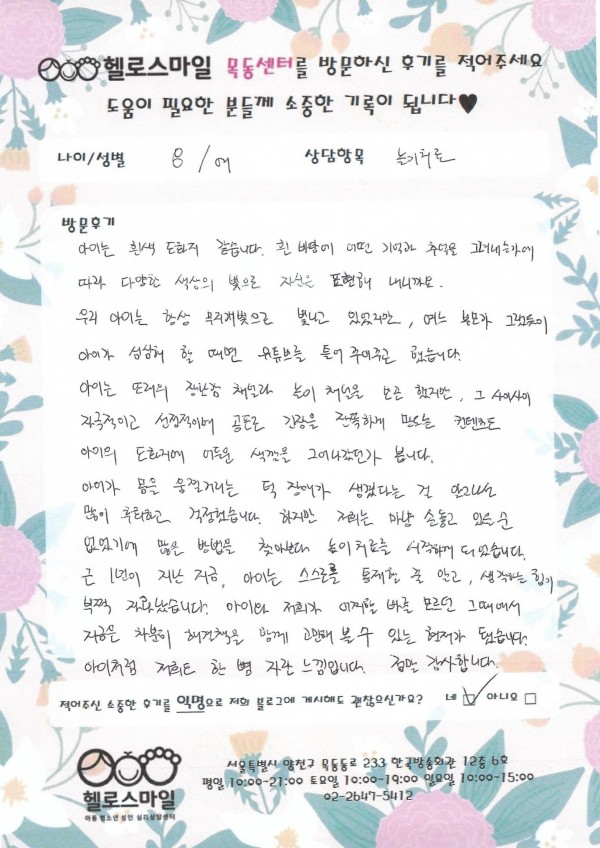 헬로스마일 목동센터를 방문하신 후기를 적어주세요
도움이 필요한 분들께 소중한 기록이 됩니다♥
나이/성별 8 / 여 상담항목 놀이치료
방문후기
아이는 흰색 도화지 같습니다. 흰 바탕에 어떤 기억과 추억을 그려내는가에
따라 다양한 색상의 빛으로 자신을 표현해 내니까요.
우리 아이는 항상 무지개빛으로 빛나고 있었지만, 여느 부모가 그렇듯이
아이가 심심해 할 때면 유튜브를 틀어 주어주곤 했습니다.
아이는 또래의 장난감 채널과 놀이 채널을 보곤 했지만, 그 사이사이
자극적이고 선정적이며 공포로 긴장을 잔뜩하게 만드는 컨텐츠도
아이의 도화지에 어두운 색깔을 그려나갔던가 봅니다.
아이가 몸을 움찔거리는 턱 장애가 생겼다는 걸 안
많이 후회하고 걱정했습니다. 하지만 저희는 마냥 손놓고 있을 순
없었기에 많은 방법을 찾아보다 놀이치료를 시작하게 되었습니다.
근 1년이 지난 지금, 아이는 스스로를 통제할 줄 알고, 생각하는 힘이
부쩍 자라났습니다. 아이와 저희가 어찌할 바를 모르던 그때에서
지금은 차분히 해결책을 함께 고민해 볼 수 있는 현재가 됐습니다.
아이처럼 저희도 한 뼘 자란 느낌입니다. 정말 감사합니다.
적어주신 소중한 후기를 익명으로 저희 블로그에 게시해도 괜찮으신가요? 네 ☑ 아니오 □
서울특별시 양천구 목동동로 233 한국방송회관 12층 6호
평일 10:00-21:00 토요일 10:00-19:00 일요일 10:00-15:00
02-2647-5412
헬로스마일
아동 청소년 성인 심리상담센터